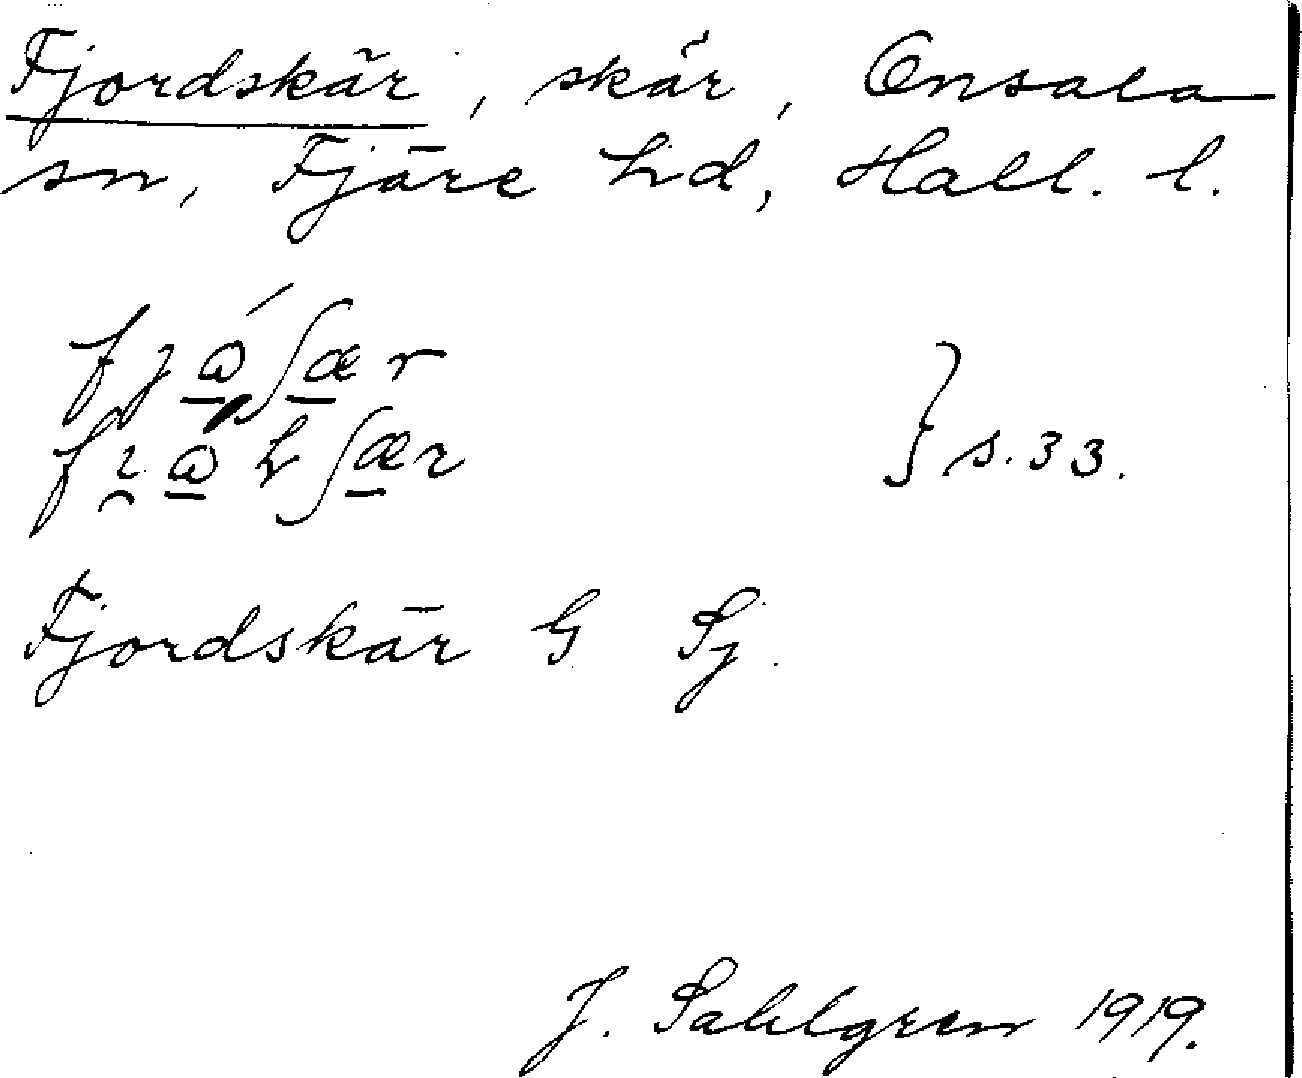 Fjordskär, skär, Onsala
sn, Fjäre hd, Hall. l.
fjώ̱ʃæ̱r
fı̯ω̱hʃæ̱r } s. 33.
Fjordskär G Sj.
J. Sahlgren 1919.